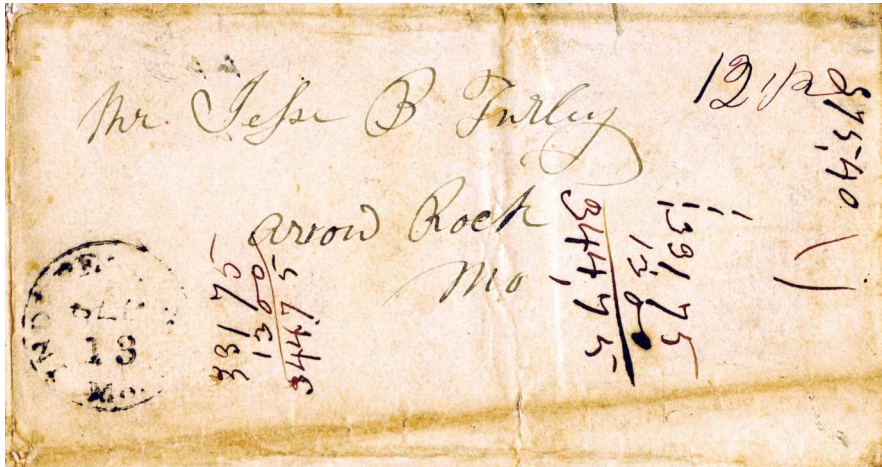 Mr. Jesse B Turley
Arrow Rock
Mo
12 1/2
575,40
33175
1300
34475
33175
130
34475
13
Mo.